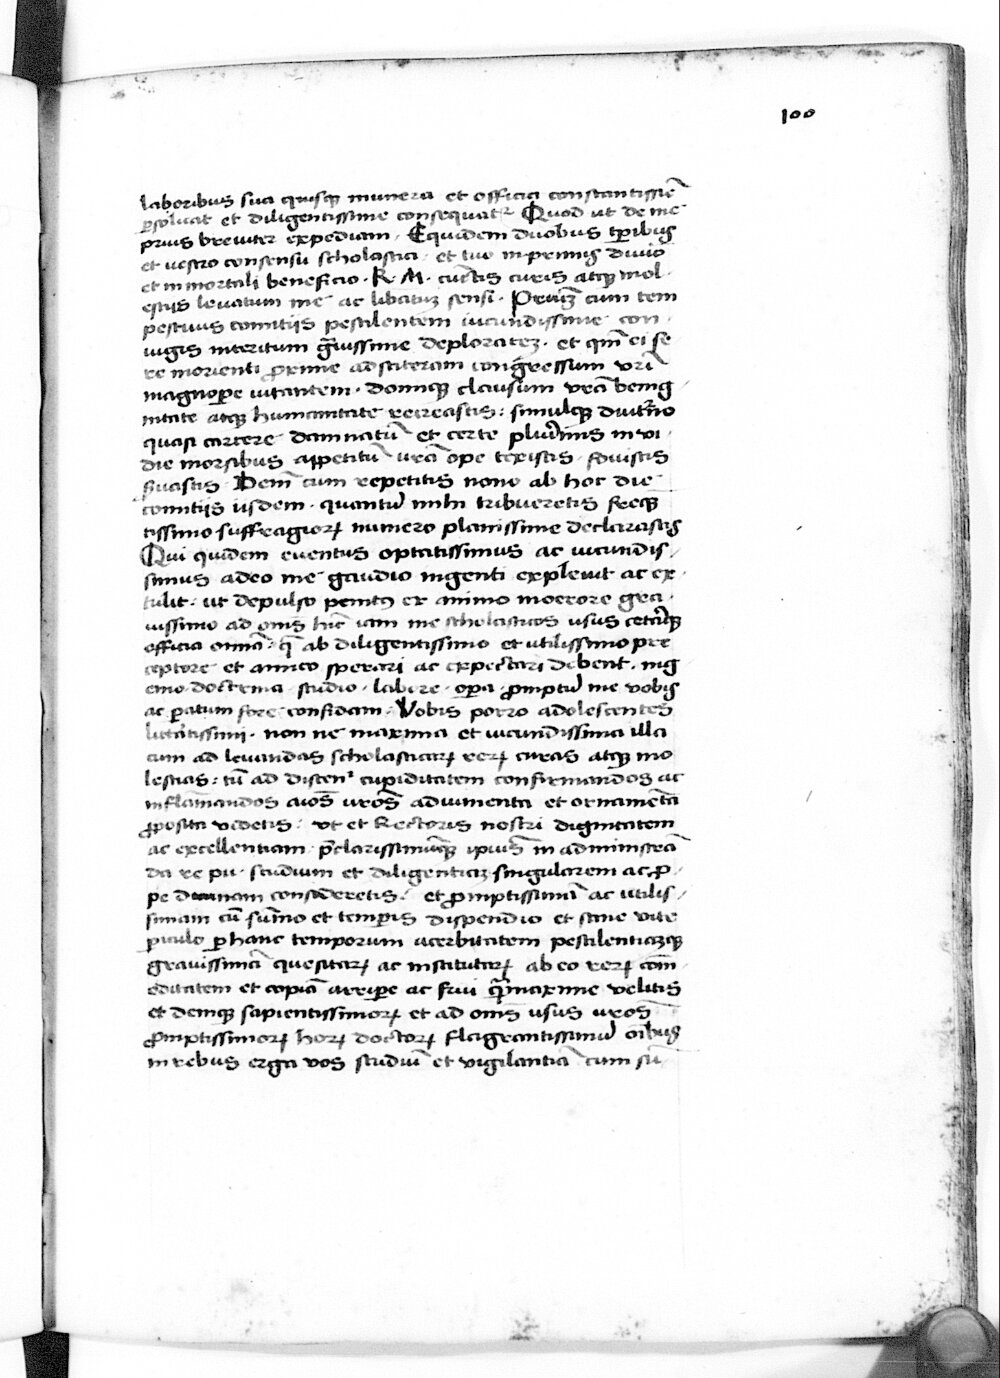 100
laboribus sua quisq munera et officia constantissie̅
p̲soluat et diligentissime consequat᷑ Quod ut de me
prius breuiter expediam · Equidem duobus tp̅ribus
et uestro consensu scholastici · et tuo inprimis diuio
et inmortali beneficio · R · M · cu̅ctis curis atq mol
estijs leuatum me ac libatuz sensi · Primu̅ cum tem
pestiuis comitijs pestilentem iucundissime con
iugis interitum g̅uissime deploratez · et qm̅ ei fe
re morienti proxime adstiteram congressum vr̅i
magnope uitantem · domuq clausum vr̅a benig
nitate atq humanitate recreastis : simulq diutr̅no
quasi carcere damnatu̅ et certe plurimis inui
die morsibus appetitu̅ vr̅a ope texistis · fouistis
s̅uastis · Dem̅ cum repetitis nono ab hoc die
comitijs iisdem · quantu̅ mihi tribueretis freq
tissimo suffragioꝝ numero planissime declarastis
Qui quidem euentus optatissimus ac iucundis
simus adeo me gaudio ingenti expleuit ac ex
tulit : ut depulso penitꝰ ex animo moerore gra
uissimo ad om̅s hi̅c iam me scholasticos usus ceteraq
officia omnia̅ · q̅ ab diligentissimo et utilissimo pre
ceptore et amico sperari ac expectari debent · ing
enio doctrina studio · labore · opa · promptu̅ me vobis
ac paratum fore confidam · Vobis porro adolescentes
litt̅atissimi · non ne maxima et iucundissima illa
cum ad leuandas scholasticaꝝ reꝝ curas atq mo
lestias : tu̅ ad discen᷑ cupiditatem confirmandos ac
infla̅mandos aio̅s vr̅os adiumenta et ornamenta
proposita videtis : vt et Rectoris nostri dignitatem
ac excellentiam · p̅clarissimu̅q ipius̅ in administra̅
da re pu · studium et diligentiaz singularem ac p̲
pe diuinam consideretis : et promptissima̅ ac utilis
simam cu̅ su̅mo et temp̲is dispendio et sane vite
p̲iculo p̲ hanc temporum acerbitatem pestilentiazq
grauissima̅ quesitaꝝ ac institutaꝝ ab eo reꝝ com̅
oditatem et copia̅ arripe ac frui q̅maxime velitis
et demq sapientissimoꝝ et ad om̅s usus vr̅os
promptissimoꝝ hoꝝ doctoꝝ flagrantissimu̅ oi̅bus
in rebus erga vos studiu̅ et vigilantia̅ cum su̅